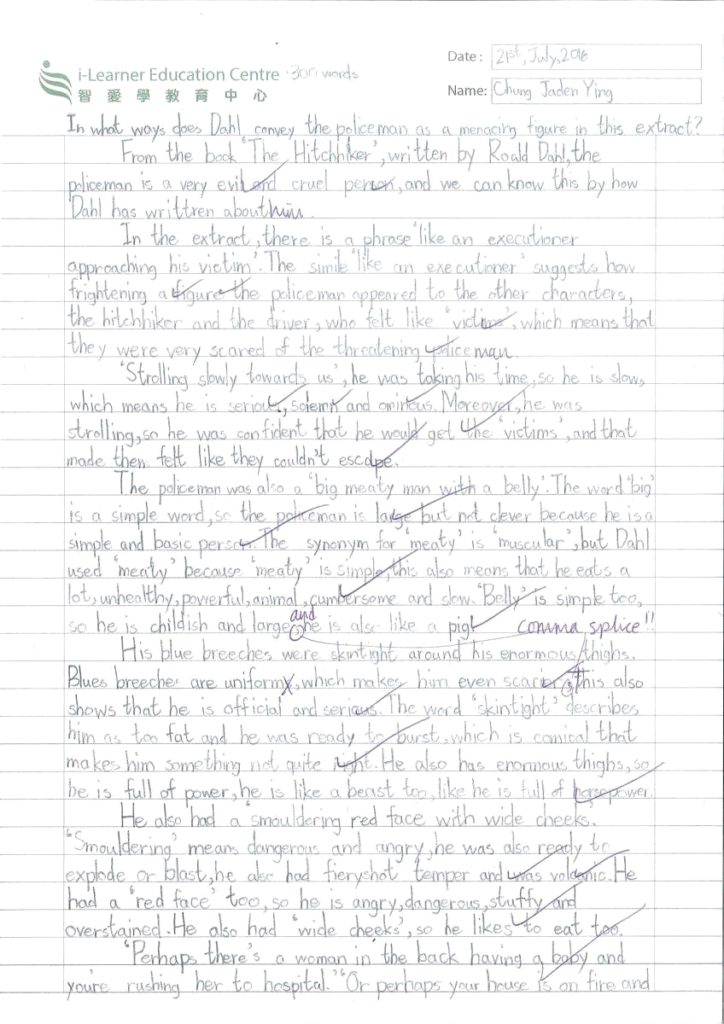 i-Learner Education Centre ·300 words
智愛學教育中心
Date: 21st, July, 2016
Name: Chung Jaden Ying
In what ways does Dahl convey the policeman as a menacing figure in this extract?
From the book 'The Hitchhiker', written by Roald Dahl, the
policeman is a very evil and cruel person, and we can know this by how
Dahl has writtren about him.
In the extract, there is a phrase 'like an executioner
approaching his victim'. The simile 'like an executioner' suggests how
frightening a figure the policeman appeared to the other characters,
the hitchhiker and the driver, who felt like 'victims', which means that
they were very scared of the threatening policeman.
'Strolling slowly towards us', he was taking his time, so he is slow,
which means he is serious, solemn and ominous. Moreover, he was
strolling, so he was confident that he would get the 'victims', and that
made them felt like they couldn't escape.
The policeman was also a 'big meaty man with a belly'. The word 'big'
is a simple word, so the policeman is large but not clever because he is a
simple and basic person. The synonym for 'meaty' is 'muscular', but Dahl
used 'meaty' because 'meaty' is simple, this also means that he eats a
lot, unhealthy, powerful, animal, cumbersome and slow. 'Belly' is simple too,
so he is childish and large, and he is also like a pig. comma splice!!
His blue breeches were skintight around his enormous thighs.
Blues breeches are uniform, which makes him even scarier, this also
shows that he is official and serious. The word 'skintight' describes
him as too fat and he was ready to burst, which is comical that
makes him something not quite right. He also has enormous thighs, so
he is full of power, he is like a beast too, like he is full of horsepower.
He also had a 'smouldering red face with wide cheeks'.
'Smouldering' means dangerous and angry, he was also ready to
explode or blast, he also had fieryshot temper and was volcanic. He
had a 'red face' too, so he is angry, dangerous, stuffy and
overstained. He also had 'wide cheeks', so he likes to eat too.
'Perhaps there's a woman in the back having a baby and
you're rushing her to hospital.' 'Or perhaps your house is on fire and